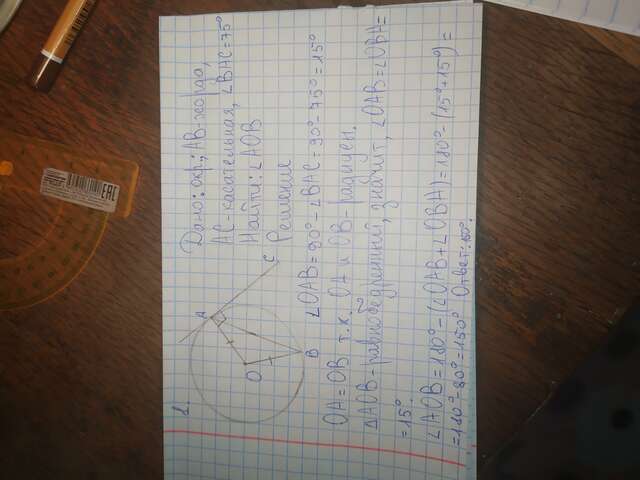 1.
Дано: окр.; AB-хорда,
AC-касательная, ∠BAC=75°
Найти: ∠AOB
Решение
A
C
O
B
∠OAB=90°-∠BAC=90°-75°=15°
OA=OB т.к. OA и OB-радиусы.
ΔAOB-равнобедренный, значит, ∠OAB=∠OBA=
=15°.
∠AOB=180°-(∠OAB+∠OBA)=180°-(15°+15°)=
=180°-30°=150° Ответ: 150°.
EAC